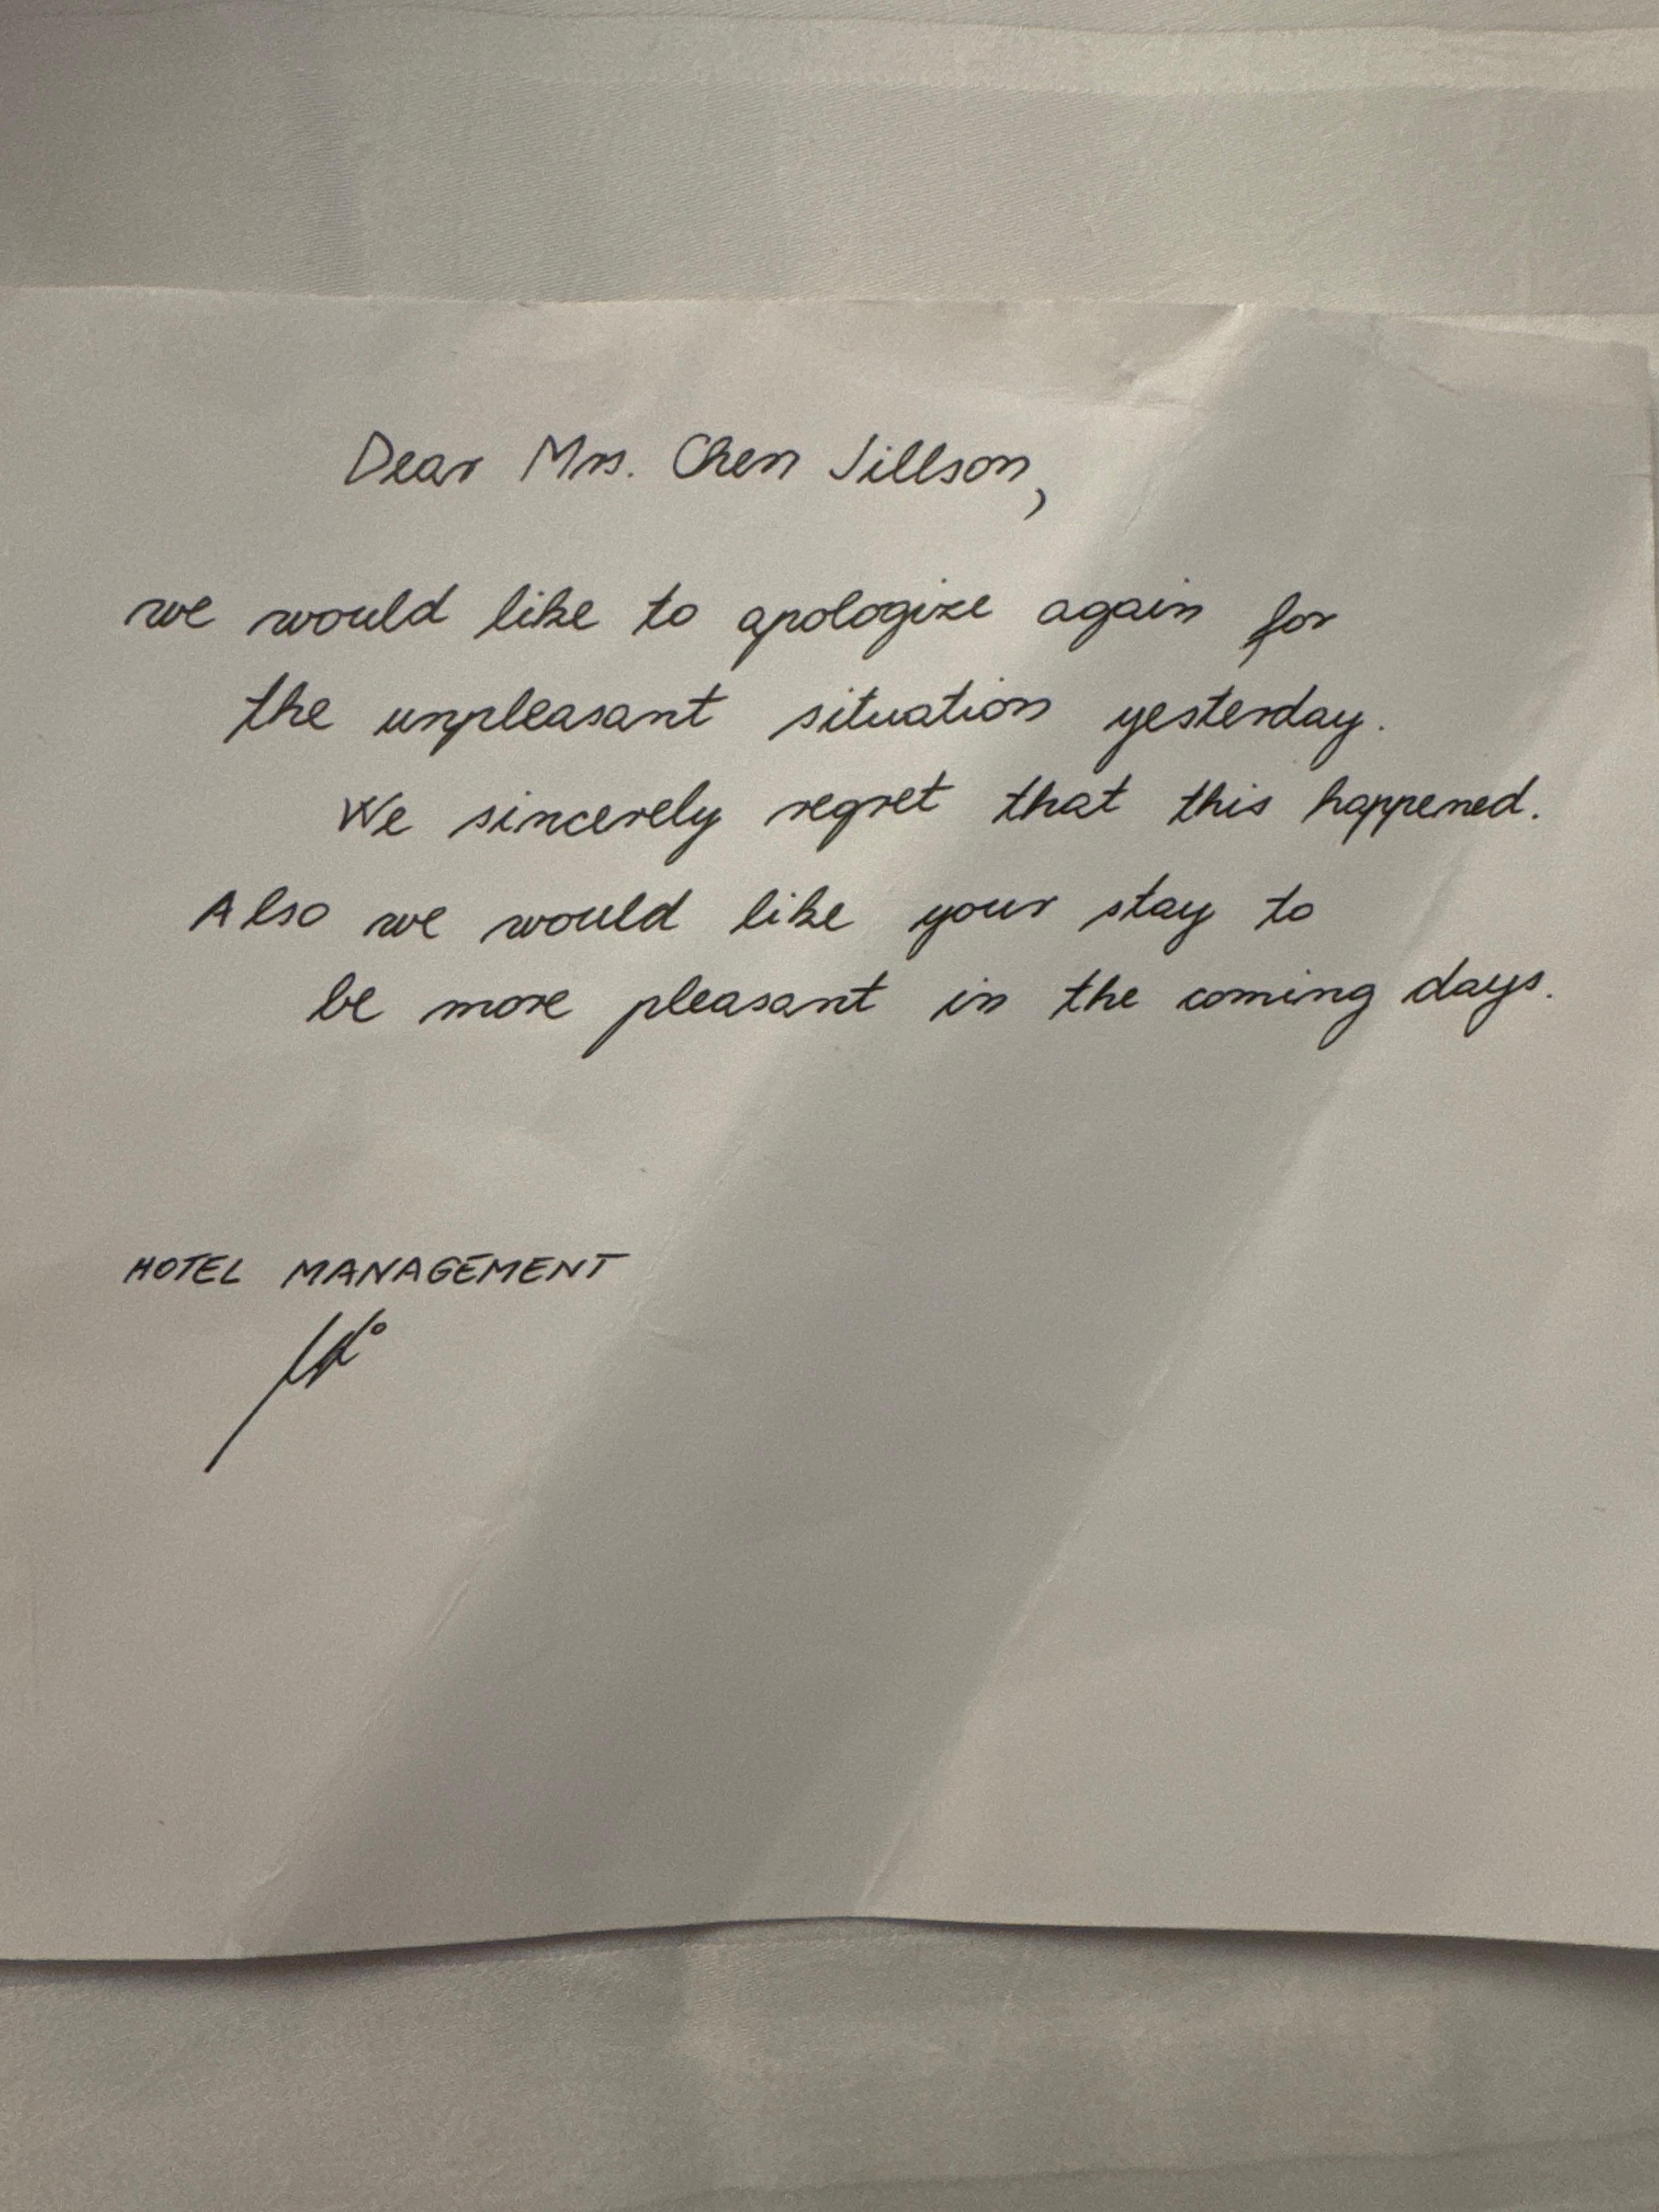 Dear Mrs. Chen Jillson,
we would like to apologize again for
the unpleasant situation yesterday.
We sincerely regret that this happened.
Also we would like your stay to
be more pleasant in the coming days.
HOTEL MANAGEMENT